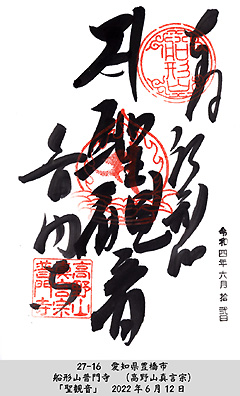 奉拝 船形山
聖観音
普門寺
船形山
高野山
真言宗
普門寺
令和四年六月拾弐日
27-16 愛知県豊橋市
船形山普門寺 (高野山真言宗)
「聖観音」 2022年6月12日